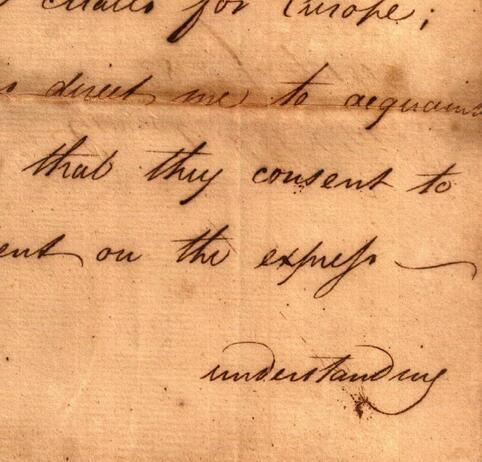 for Europe;
direct me to acquaint
that they consent to
ent on the expreſs
understanding